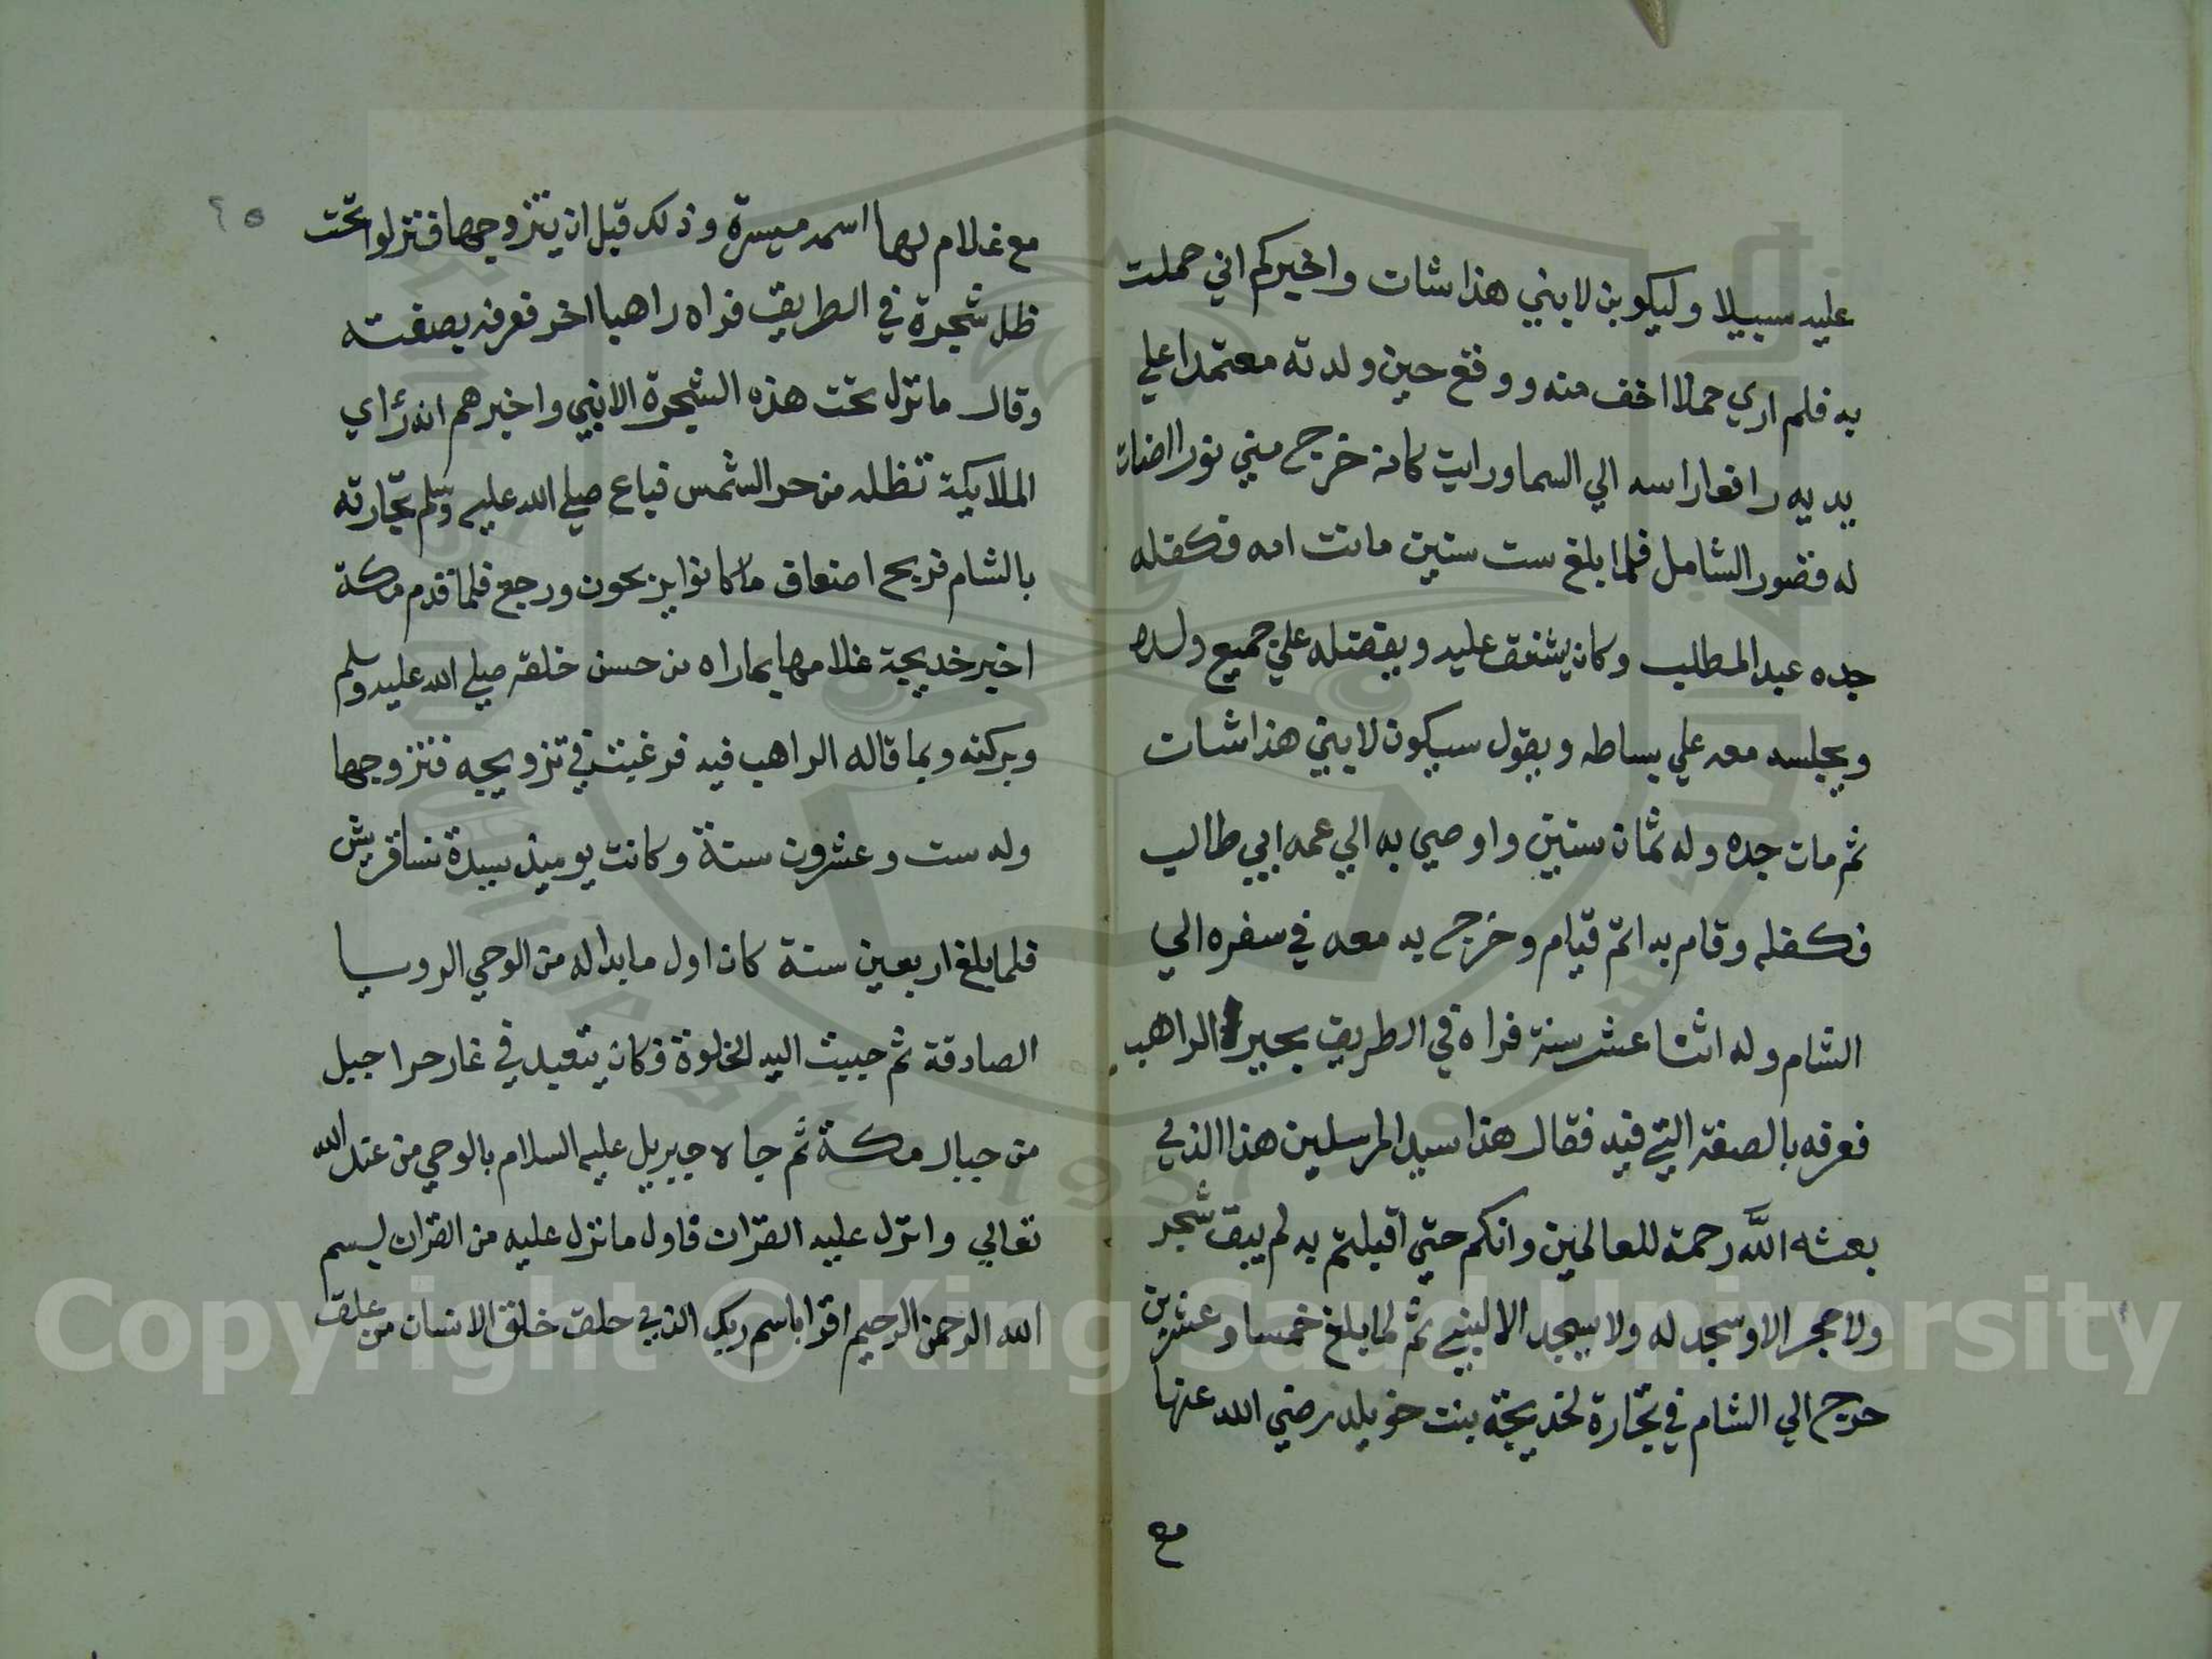 عليه سبيلا وليكوبن لابني هذا شات واخبركم اني حملت
به فلم اري حملا اخف منه ووقع حين ولدته معتمدا علي
يديه رافعا راسه الي السما ورايت كانه خرج مني نورا اضات
له قصور الشام فلما بلغ ست سنين ماتت امه فكفله
جده عبد المطلب وكان يشفق عليه ويفضله علي جميع ولده
ويجلسه معه علي بساطه ويقول سيكون لابني هذا شات
ثم مات جده وله ثمان سنين واوصي به الي عمه ابي طالب
فكفله وقام به اتم قيام وخرج به معه في سفره الي
الشام وله اثنا عشر سنة فراه في الطريق بحيرا الراهب
فعرفه بالصفة التي فيه فقال هذا سيد المرسلين هذا الذي
بعثه الله رحمة للعالمين وانكم حتي اقبلتم به لم يبق شجر
ولا حجر الا وسجد له ولا يسجد الا لنبي ثم لما بلغ خمسا وعشرين
خرج الي الشام في تجارة لخديجة بنت خويلد رضي الله عنها
مع
٢٥
مع غلام لها اسمه ميسرة وذلك قبل ان يتزوجها فنزلوا تحت
ظل شجرة في الطريق فراه راهبا اخر فعرفه بصفته
وقال ما نزل تحت هذه الشجرة الا نبي واخبرهم انه راي
الملايكة تظله من حر الشمس فباع صلي الله عليه وسلم تجارته
بالشام فربح اضعاف ما كانوا يربحون ورجع فلما قدم مكة
اخبر خديجة غلامها بما راه من حسن خلقه صلي الله عليه وسلم
وبركته وبما قاله الراهب فيه فرغبت في تزويجه فتزوجها
وله ست وعشرون سنة وكانت يوميذ سيدة نسا قريش
فلما بلغ اربعين سنة كان اول ما بدا له من الوحي الرويا
الصادقة ثم حببت اليه الخلوة فكان يتعبد في غار حرا جبل
من جبال مكة ثم جاه جبريل عليه السلام بالوحي من عند الله
تعالي وانزل عليه القران فاول ما نزل عليه من القران بسم
الله الرحمن الرحيم اقرا باسم ربك الذي خلق خلق الانسان من علق
Copyright © King Saud University
1957